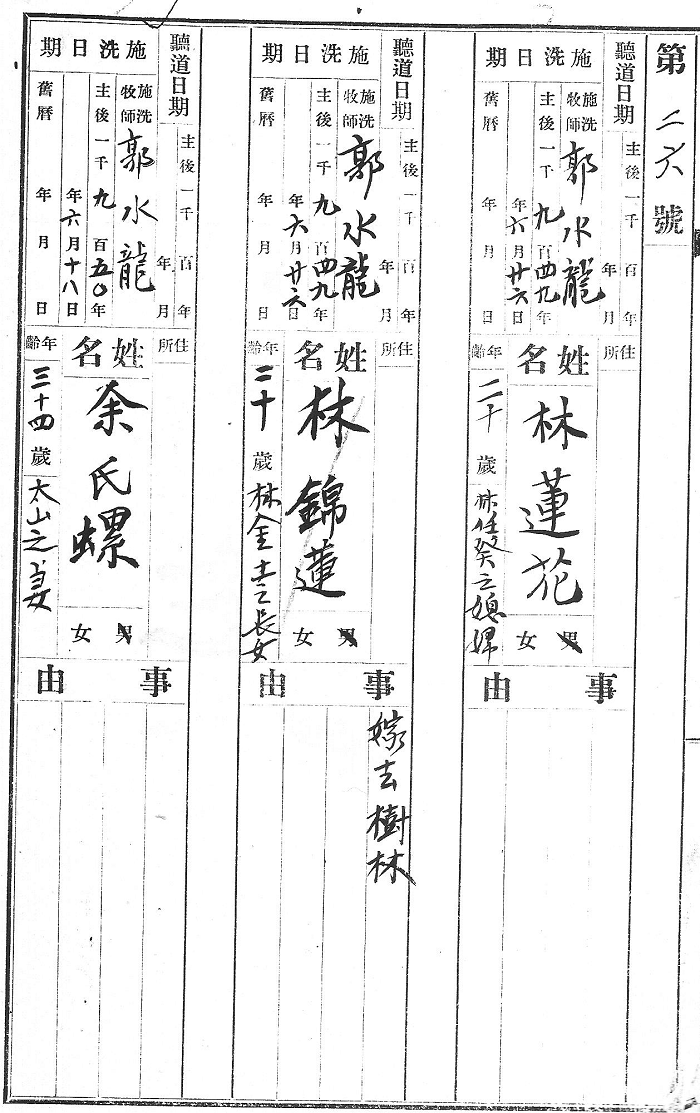 第二六號
聽道日期
主後一千 百 年
年 月
施洗日期
施洗牧師 郭水龍
主後一千九百四九年
年六月廿六日
舊曆 年 月 日
住所
姓名
林蓮花
男 女
年齡
二十歲
林任癸之媳婦
事由
聽道日期
主後一千 百 年
年 月
施洗日期
施洗牧師 郭水龍
主後一千九百四九年
年六月廿六日
舊曆 年 月 日
住所
姓名
林錦蓮
男 女
年齡
二十歲
林金 長女
事由
嫁去樹林
聽道日期
主後一千 百 年
年 月
施洗日期
施洗牧師 郭水龍
主後一千九百五〇年
年六月十八日
舊曆 年 月 日
住所
姓名
余氏螺
男 女
年齡
三十四歲
太山之妻
事由